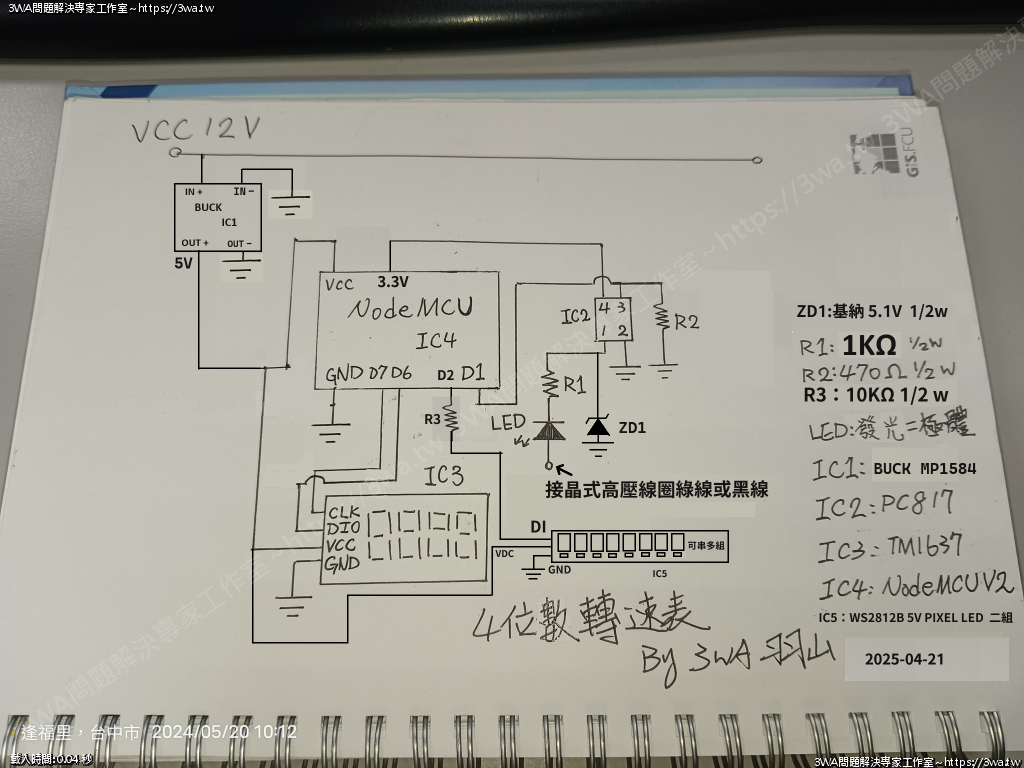 3WA問題解決專家工作室~https://3wa.tw
3WA問題解決專家工作室~https://3wa.tw
GIS.FCU
VCC 12V
IN +
IN -
BUCK
IC1
OUT +
OUT -
5V
VCC
3.3V
NodeMCU
IC4
GND D7 D6
D2 D1
IC2
4 3
1 2
R2
R1
R3
LED
ZD1
接晶式高壓線圈綠線或黑線
IC3
CLK
DIO
VCC
GND
DI
VDC
GND
可串多組
IC5
ZD1:基納 5.1V 1/2w
R1: 1KΩ 1/2w
R2:470Ω 1/2 w
R3:10KΩ 1/2 w
LED:發光二極體
IC1: BUCK MP1584
IC2:PC817
IC3:TM1637
IC4: NodeMCU V2
IC5:WS2812B 5V PIXEL LED 二組
4位數轉速表
By 3WA 羽山
2025-04-21
逢福里,台中市 2024/05/20 10:12
載入時間:0.04 秒
3WA問題解決專家工作室~https://3wa.tw